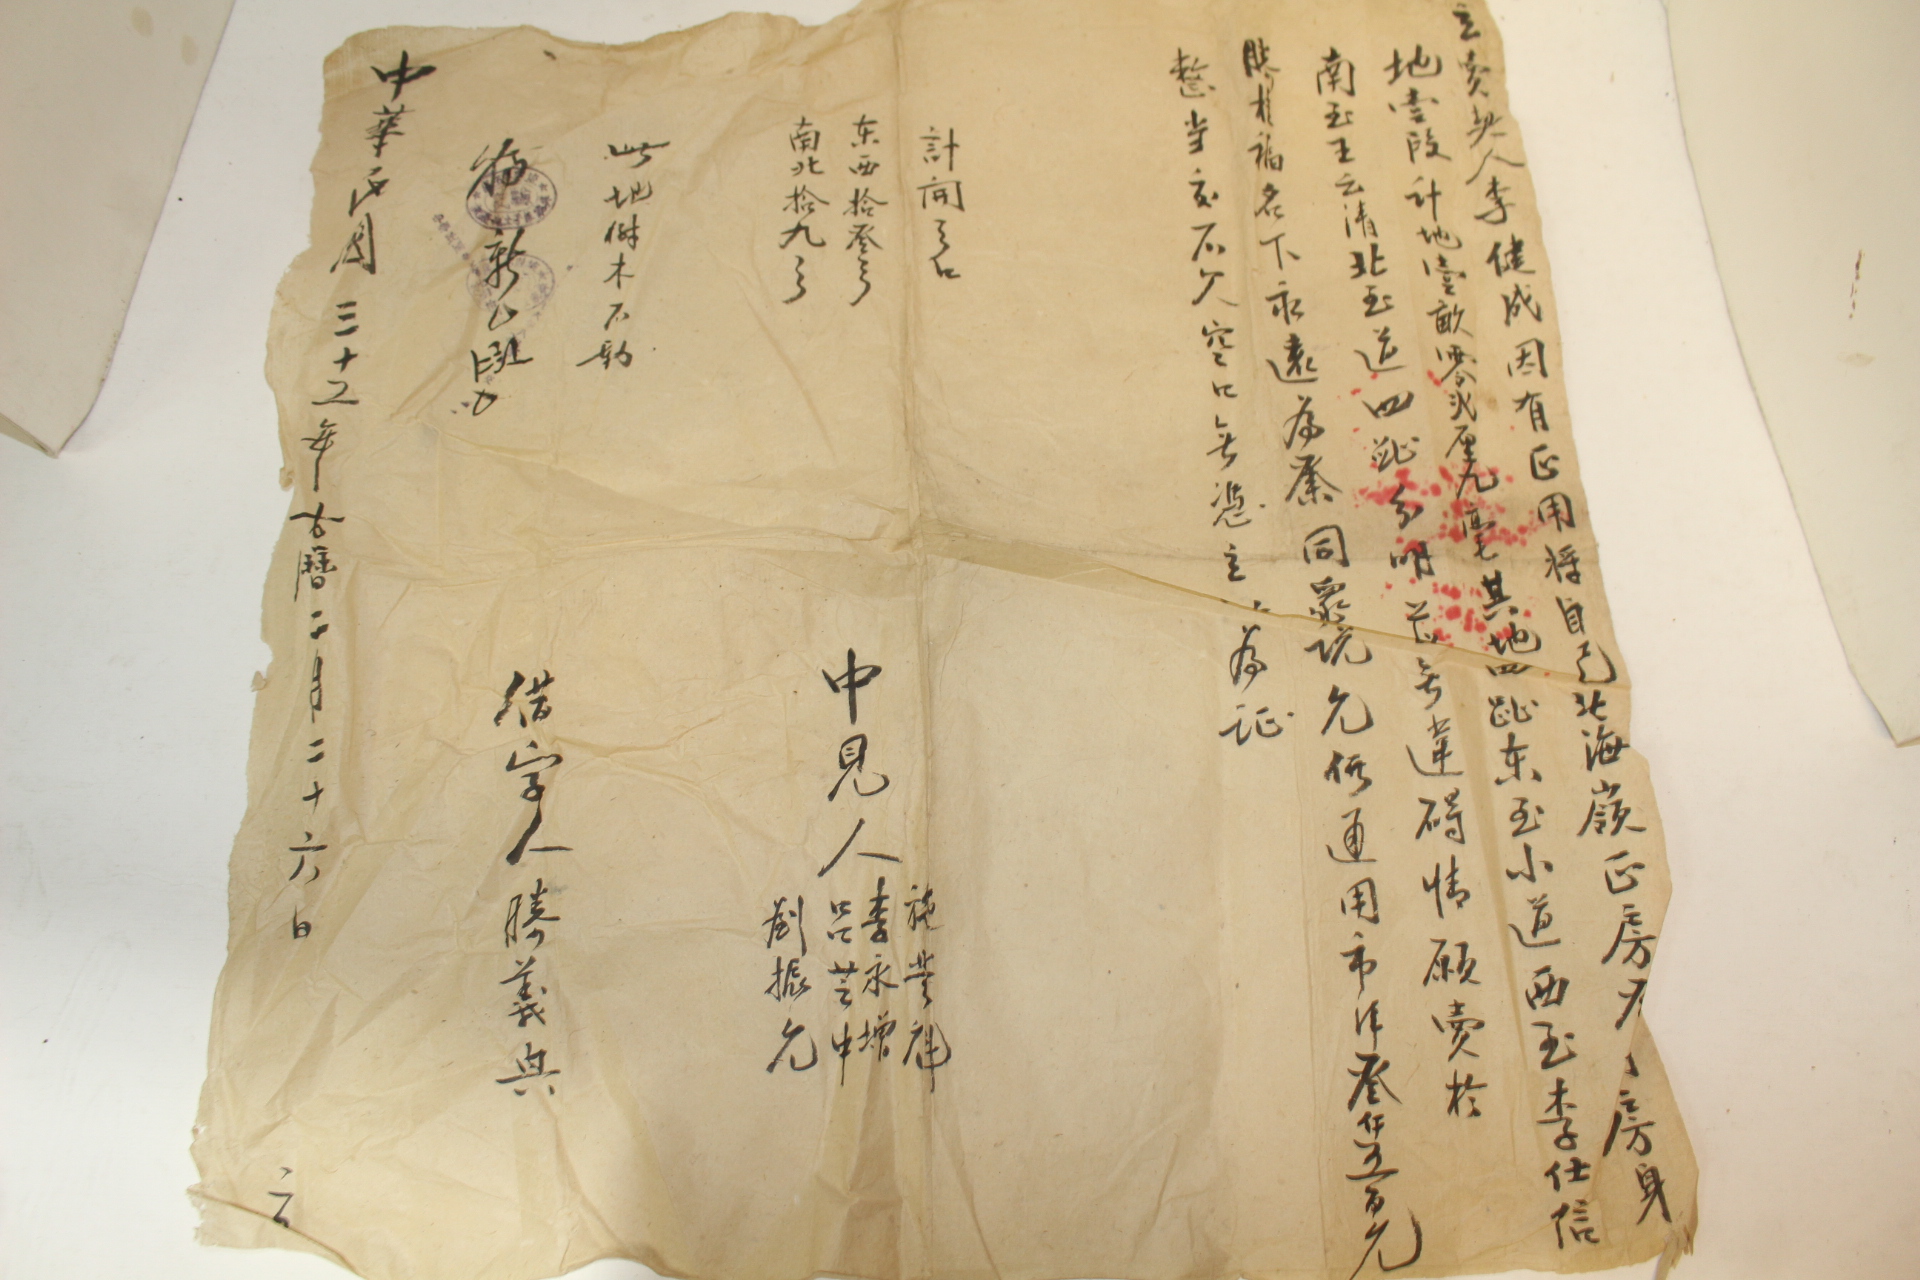 立賣契人李健成因有正用将自己北海嶺正房房身
地壹段計地壹畝零弍厘九毫其地四趾东至小道西至李仕信
南至王云清北至道四趾分明並無違碍情願賣於
勝桂福名下永遠為業同衆説允價通用市洋叁仟五百元
整當交不欠空口無憑立為証
計開弓口
东西拾叁弓
南北拾九弓
此地樹木不動
中見人
李永增
吕芸申
劉振允
借字人勝義興
中華民國三十五年古曆二月二十六日
立